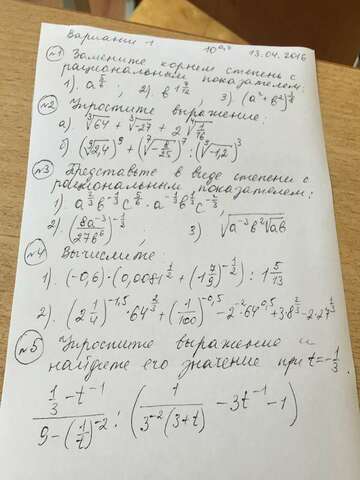 Вариант 1. 10 13.04.2016
№1 Замените корнем степень с
рациональным показателем:
1). a^(5/6), 2) b^, 3). (a²+b²)^
№2 Упростите выражение:
а). ∛64 + ∛-27 + 2∜(1/16)
б) (⁹√2,4)⁹ + (⁷√(-8/25))⁷ : (³√-1,2)³
№3 Представьте в виде степени с
рациональным показателем:
1) a^(2/3) b^(-1/3) c^(5/6) · a^(-1/3) b^(1/3) c^(-2/3)
2) (8a⁻³/27b⁶)^(-1/3) 3) √(a⁻³b²√ab)
№4 Вычислите:
1). (-0,6)·(0,0081^(1/2) + (1 7/9)^(-1/2)) : 1 5/13
2). (2 1/4)^(-1,5) · 64^(2/3) + (1/100)^(-0,5) - 2⁻²·64^(0,5) + 3·8^(2/3) - 2·27^(1/3)
№5 Упростите выражение и
найдите его значение при t=-1/3.
(1/3 - t⁻¹)/(9-(1/t)⁻²) : (1/(3⁻²(3+t)) - 3t⁻¹ - 1)